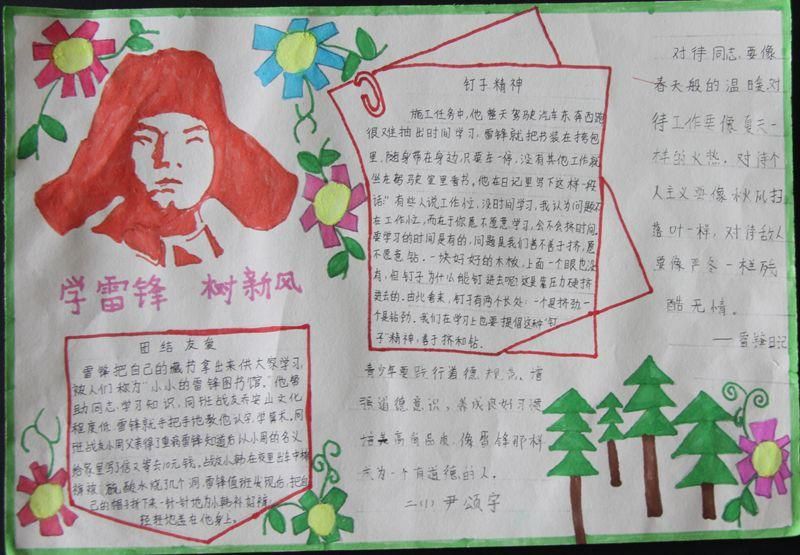 学雷锋 树新风
团结友爱
雷锋把自己的藏书拿出来供大家学习,
被人们称为"小小的雷锋图书馆。"他帮
助同志学习知识,同班战友乔安山文化
程度低,雷锋就手把手地教他认字,学算术。同
班战友小周父亲得了重病雷锋知道后以小周的名义
给家里写了信又寄去10元钱。战友小韩在夜里出车中棉
裤被硫酸水烧了几个洞,雷锋值班出现后,把自
己的帽子拆下来一针一针地为小韩补好裤
轻轻地盖在他身上。
钉子精神
施工任务中,他整天驾驶汽车东奔西跑
很难抽出时间学习,雷锋就把书装在挎包
里,随身带在身边,只要车一停,没有其他工作就
坐在驾驶室里看书。他在日记里写下这样一段
话:"有些人说工作忙,没时间学习,我认为问题不
在工作忙,而在于你愿不愿意学习,会不会挤时间。
要学习的时间是有的,问题是我们善不善于挤,愿
不愿意钻。一块好好的木板,上面一个眼也没
有,但钉子为什么能钉进去呢?这是靠压力硬挤
进去的。由此看来,钉子有两个长处:一个是挤劲一
个是钻劲。我们在学习上也要提倡这种"钉
子"精神,善于挤和钻。
青少年要践行道德规范。增
强道德意识,养成良好习惯
培养高尚品质,像雷锋那样
成为一个有道德的人。
二(1) 尹颂宇
对待同志,要像
春天般的温暖,对
待工作要像夏天一
样的火热,对待个
人主义要像秋风扫
落叶一样,对待敌人
要像严冬一样残
酷无情。
——雷锋日记